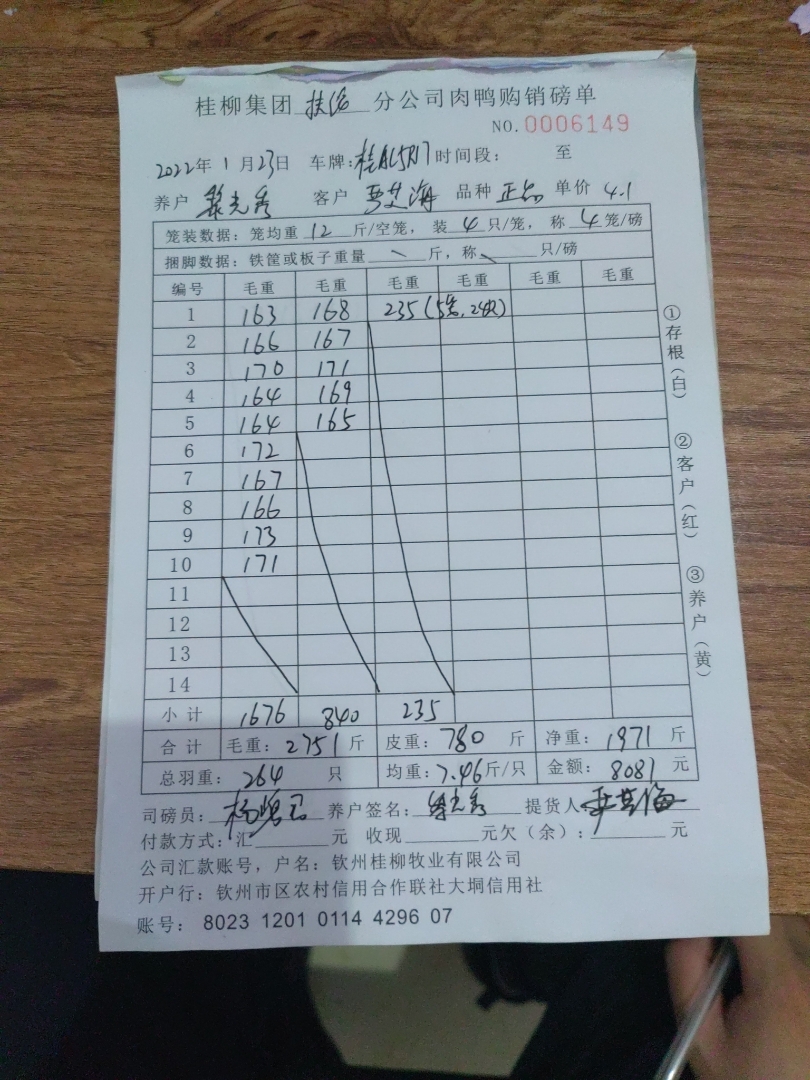 桂柳集团 扶绥 分公司肉鸭购销磅单
NO.0006149
2022年 1月23日 车牌: 时间段: 至
养户 黎光秀 客户 海 品种 正品 单价 4.1
笼装数据: 笼均重 12 斤/空笼, 装 4 只/笼, 称 4 笼/磅
捆脚数据: 铁筐或板子重量 \ 斤, 称 \ 只/磅
编号 毛重 毛重 毛重 毛重 毛重 毛重
1 163 168 235 (5笼,24只)
2 166 167
3 170 171
4 164 169
5 164 165
6 172
7 167
8 166
9 173
10 171
11
12
13
14
小计 1676 840 235
合计 毛重: 2751 斤 皮重: 780 斤 净重: 1971 斤
总羽重: 264 只 均重: 7.46 斤/只 金额: 8081 元
司磅员: 杨 养户签名: 黎光秀 提货人: 海
付款方式: 汇 元 收现 元欠(余): 元
公司汇款账号, 户名: 钦州桂柳牧业有限公司
开户行: 钦州市区农村信用合作联社大垌信用社
账号: 8023 1201 0114 4296 07
①存根(白)
②客户(红)
③养户(黄)